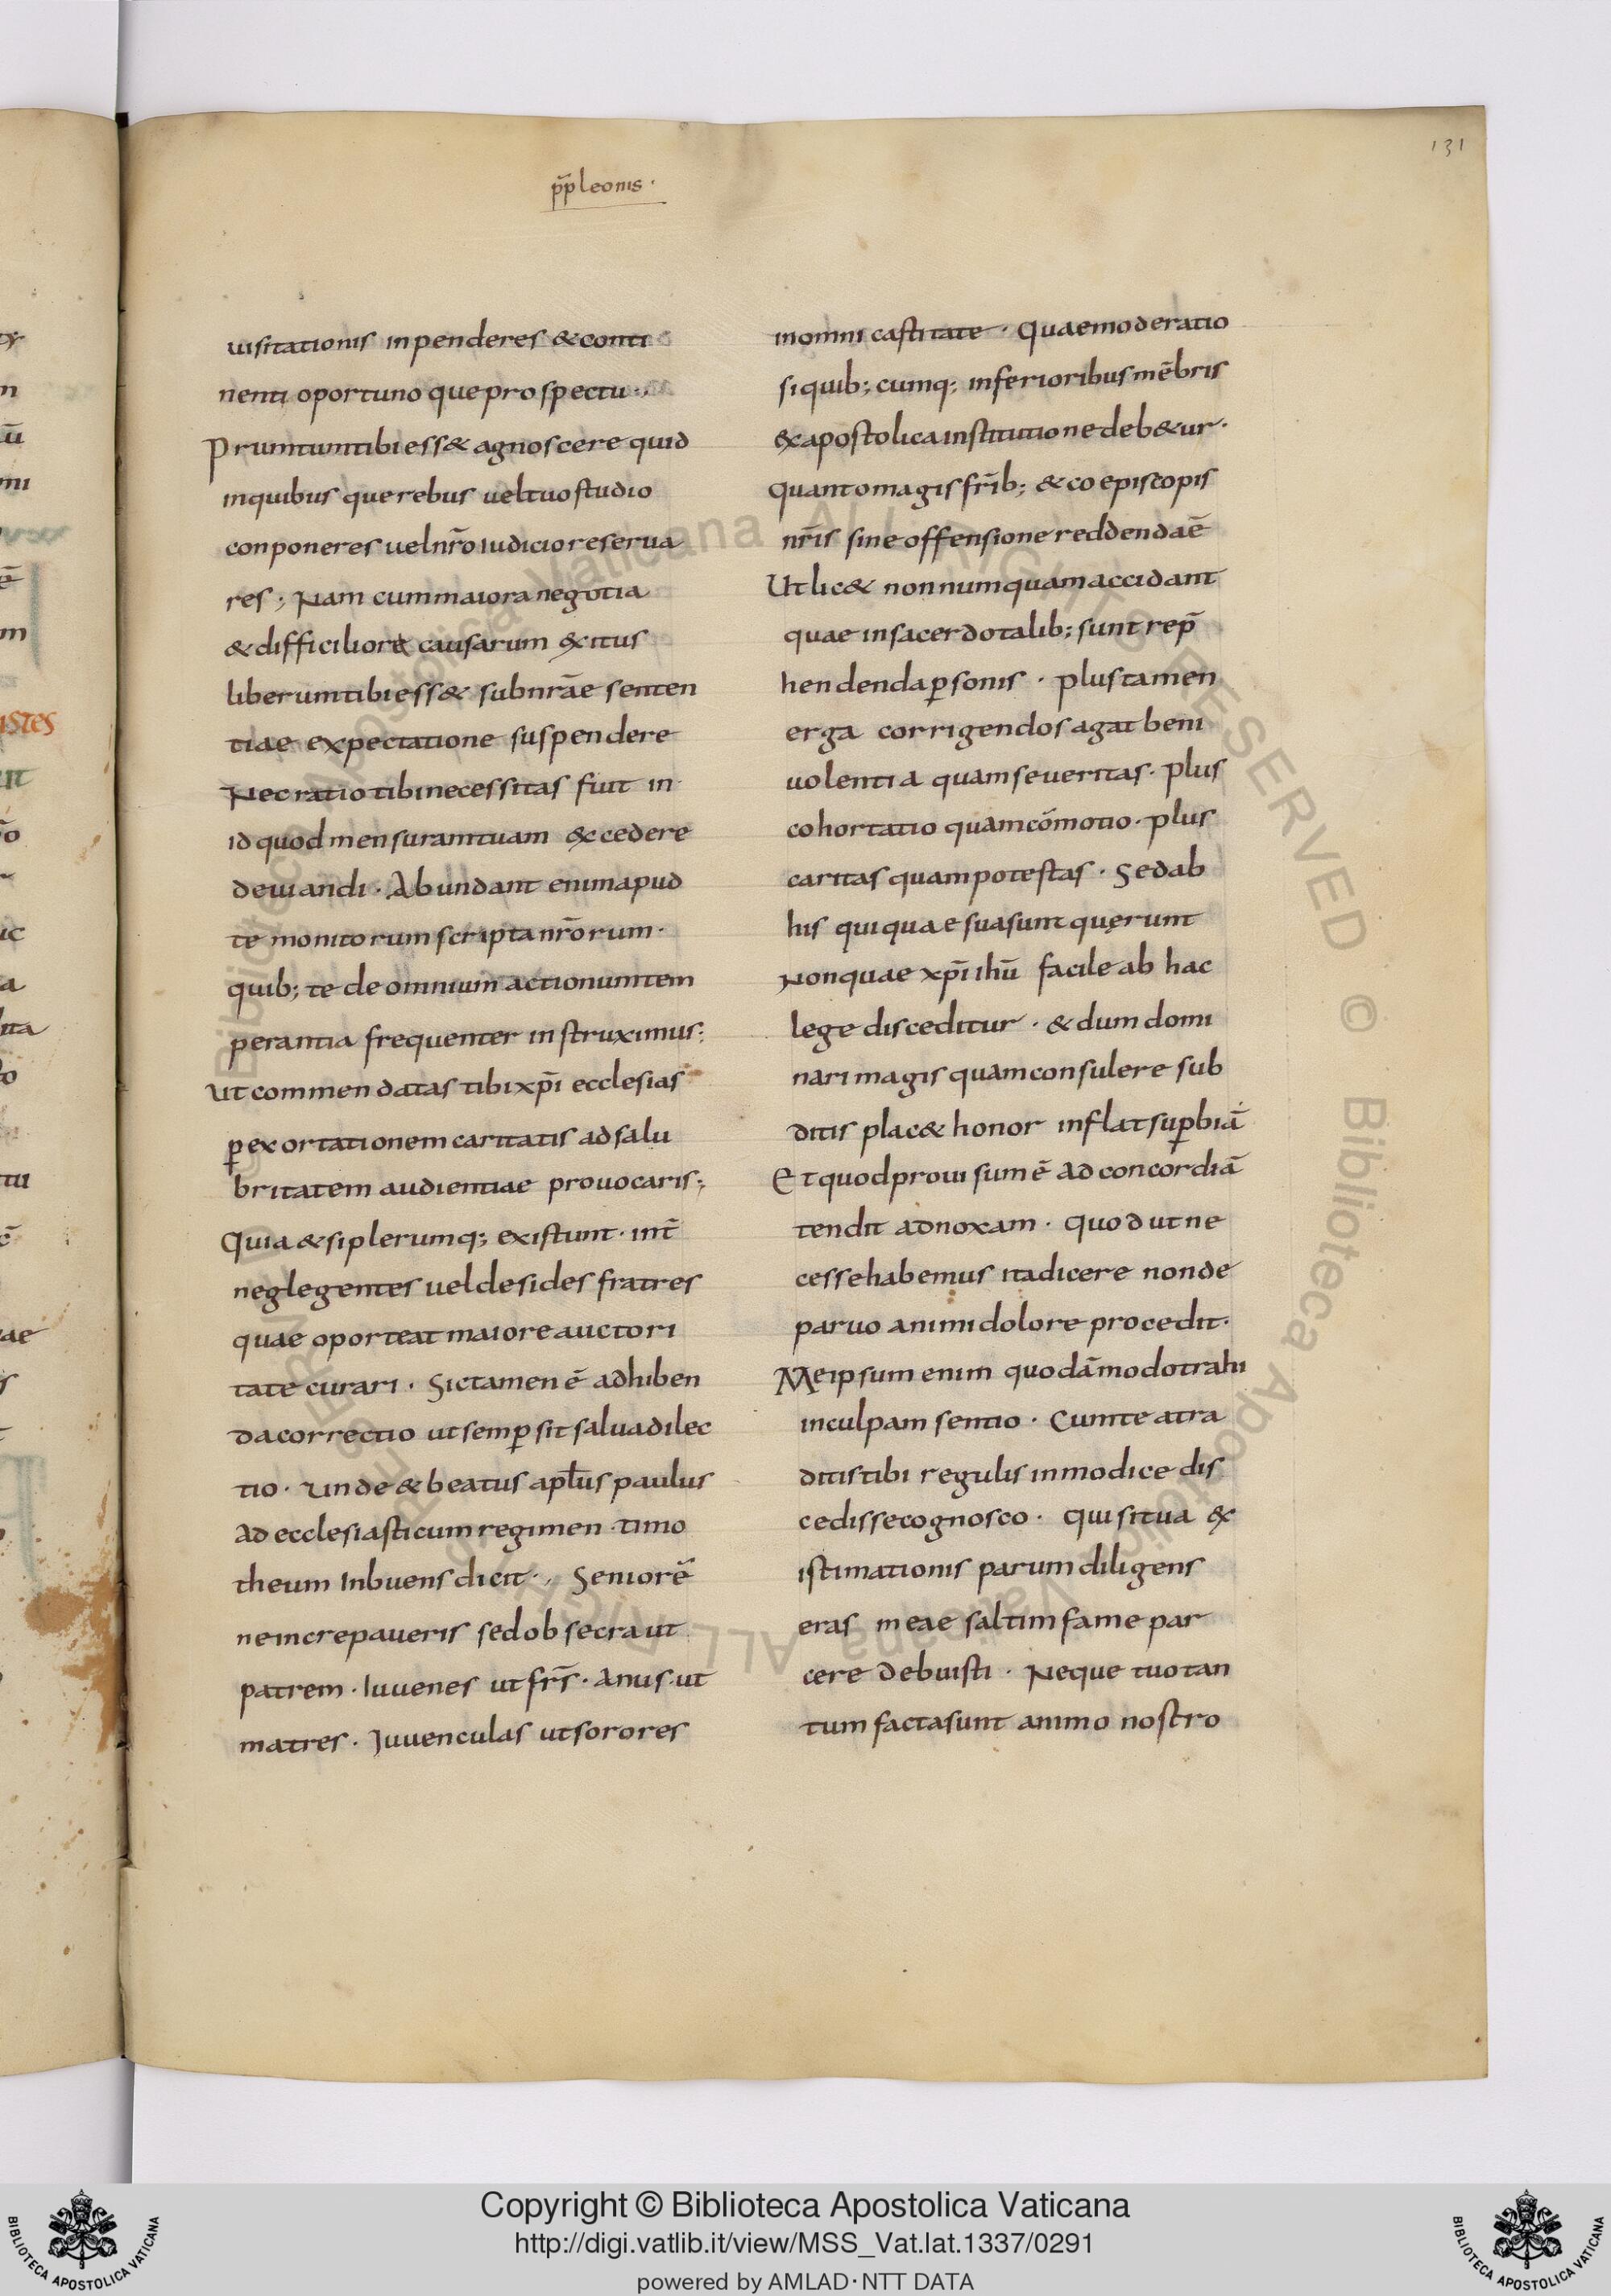 131
p̄p leonis ·
uisitationis inpenderes & conti
nenti oportuno que prospectu ·,
Prumtum tibi ess& agnoscere quid
in quibus que rebus uel tuo studio
conponeres uel nr̄o iudicio reserua
res ; Nam cum maiora negotia
& difficiliore causarum &xitus
liberum tibi ess& sub nrāe senten
tiae expectatione suspendere
Nec ratio tibi necessitas fuit in
id quod mensuram tuam &xcedere
deuiandi · Abundant enim apud
te monitorum scripta nr̄orum ·
quib; te de omnium actionum tem
perantia frequenter instruximus ;
ut commendatas tibi xp̄i ecclesias
p̱ exortationem caritatis ad salu
britatem audientiae prouocaris ;
Quia & si plerumq; existunt · int̄
neglegentes uel desides fratres
quae oporteat maiore auctori
tate curari · Sic tamen ē adhiben
da correctio ut semp̱ sit salua dilec
tio · unde & beatus apl̄us paulus
Ad ecclesiasticum regimen · timo
theum Inbuens dicit ·, Seniorē
ne increpaueris sed obsecra ut
patrem · Iuuenes ut fr̄s · Anus ut
matres · Iuuenculas ut sorores
in omni castitate · Quae moderatio
si quib; cumq; inferioribus mēbris
&x apostolica institutione deb&ur ·
quanto magis frīb; & coepiscopis
nrīs sine offensione reddenda ē
Ut lic& nonnumquam accidant
quae in sacerdotalib; sunt rep̄
hendenda p̱sonis · plus tamen
erga corrigendos agat beni
uolentia quam seueritas · Plus
cohortatio quam cōmotio · plus
caritas quam potestas · Sed ab
his qui quae sua sunt quęrunt
Non quae xp̄i ihū facile ab hac
lege disceditur · & dum domi
nari magis quam consulere sub
ditis plac& honor inflat sup̱biā
Et quod prouisum ē Ad concordiā
tendit ad noxam · quod ut ne
cesse habemus ita dicere non de
paruo animi dolore procedit ·
Me ipsum enim quodāmodo trahi
in culpam sentio · Cum te a tra
ditis tibi regulis inmodice dis
cedisse cognosco · qui si tua &x
istimationis parum diligens
eras meae saltim fame par
cere debuisti · Neque tuo tan
tum facta sunt animo nostro
Copyright © Biblioteca Apostolica Vaticana
http://digi.vatlib.it/view/MSS_Vat.lat.1337/0291
powered by AMLAD·NTT DATA
BIBLIOTECA APOSTOLICA VATICANA
BIBLIOTECA APOSTOLICA VATICANA